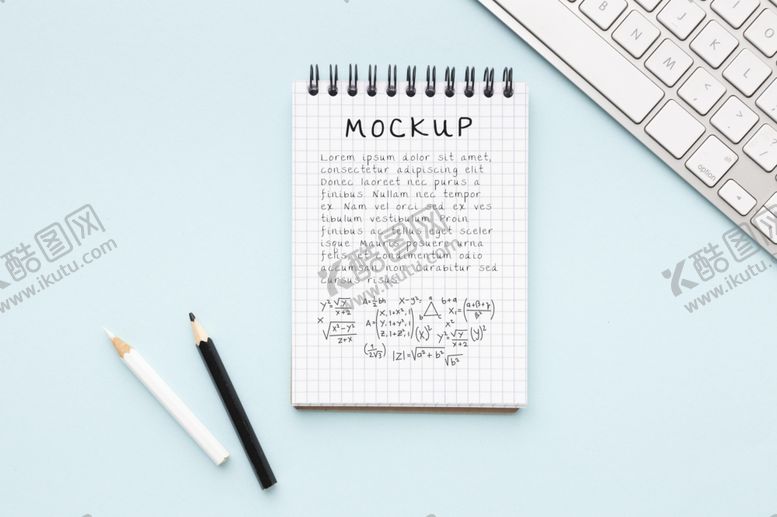 MOCKUP
Lorem ipsum dolor sit amet,
consectetur adipiscing elit
Donec laoreet nec purus a
finibus. Nullam nec tempor
ex. Nam vel orci sed ex ves
tibulum vestibulum. Proin
finibus ac tellus eget sceler
isque. Mauris posuere urna
felis, et condimentum odio
accumsan non. Curabitur sed
cursus risus.
y²=√x/x+2 A=½bh x-y², a b+a x₁=(a+β+γ/β²)
x √x²-y²/z+x A=(x, 1+x², 1 y, 1+y², 1 z, 1+z², 1) b c x² (x)² y²=√y/x+2 (y)²
(1/2√3) |Z|=√a²+b² √b²
图库网
www.ikutu.com
图库网
www.ikutu.com
图库网
www.ikutu.com
N
M
B
K
J
L